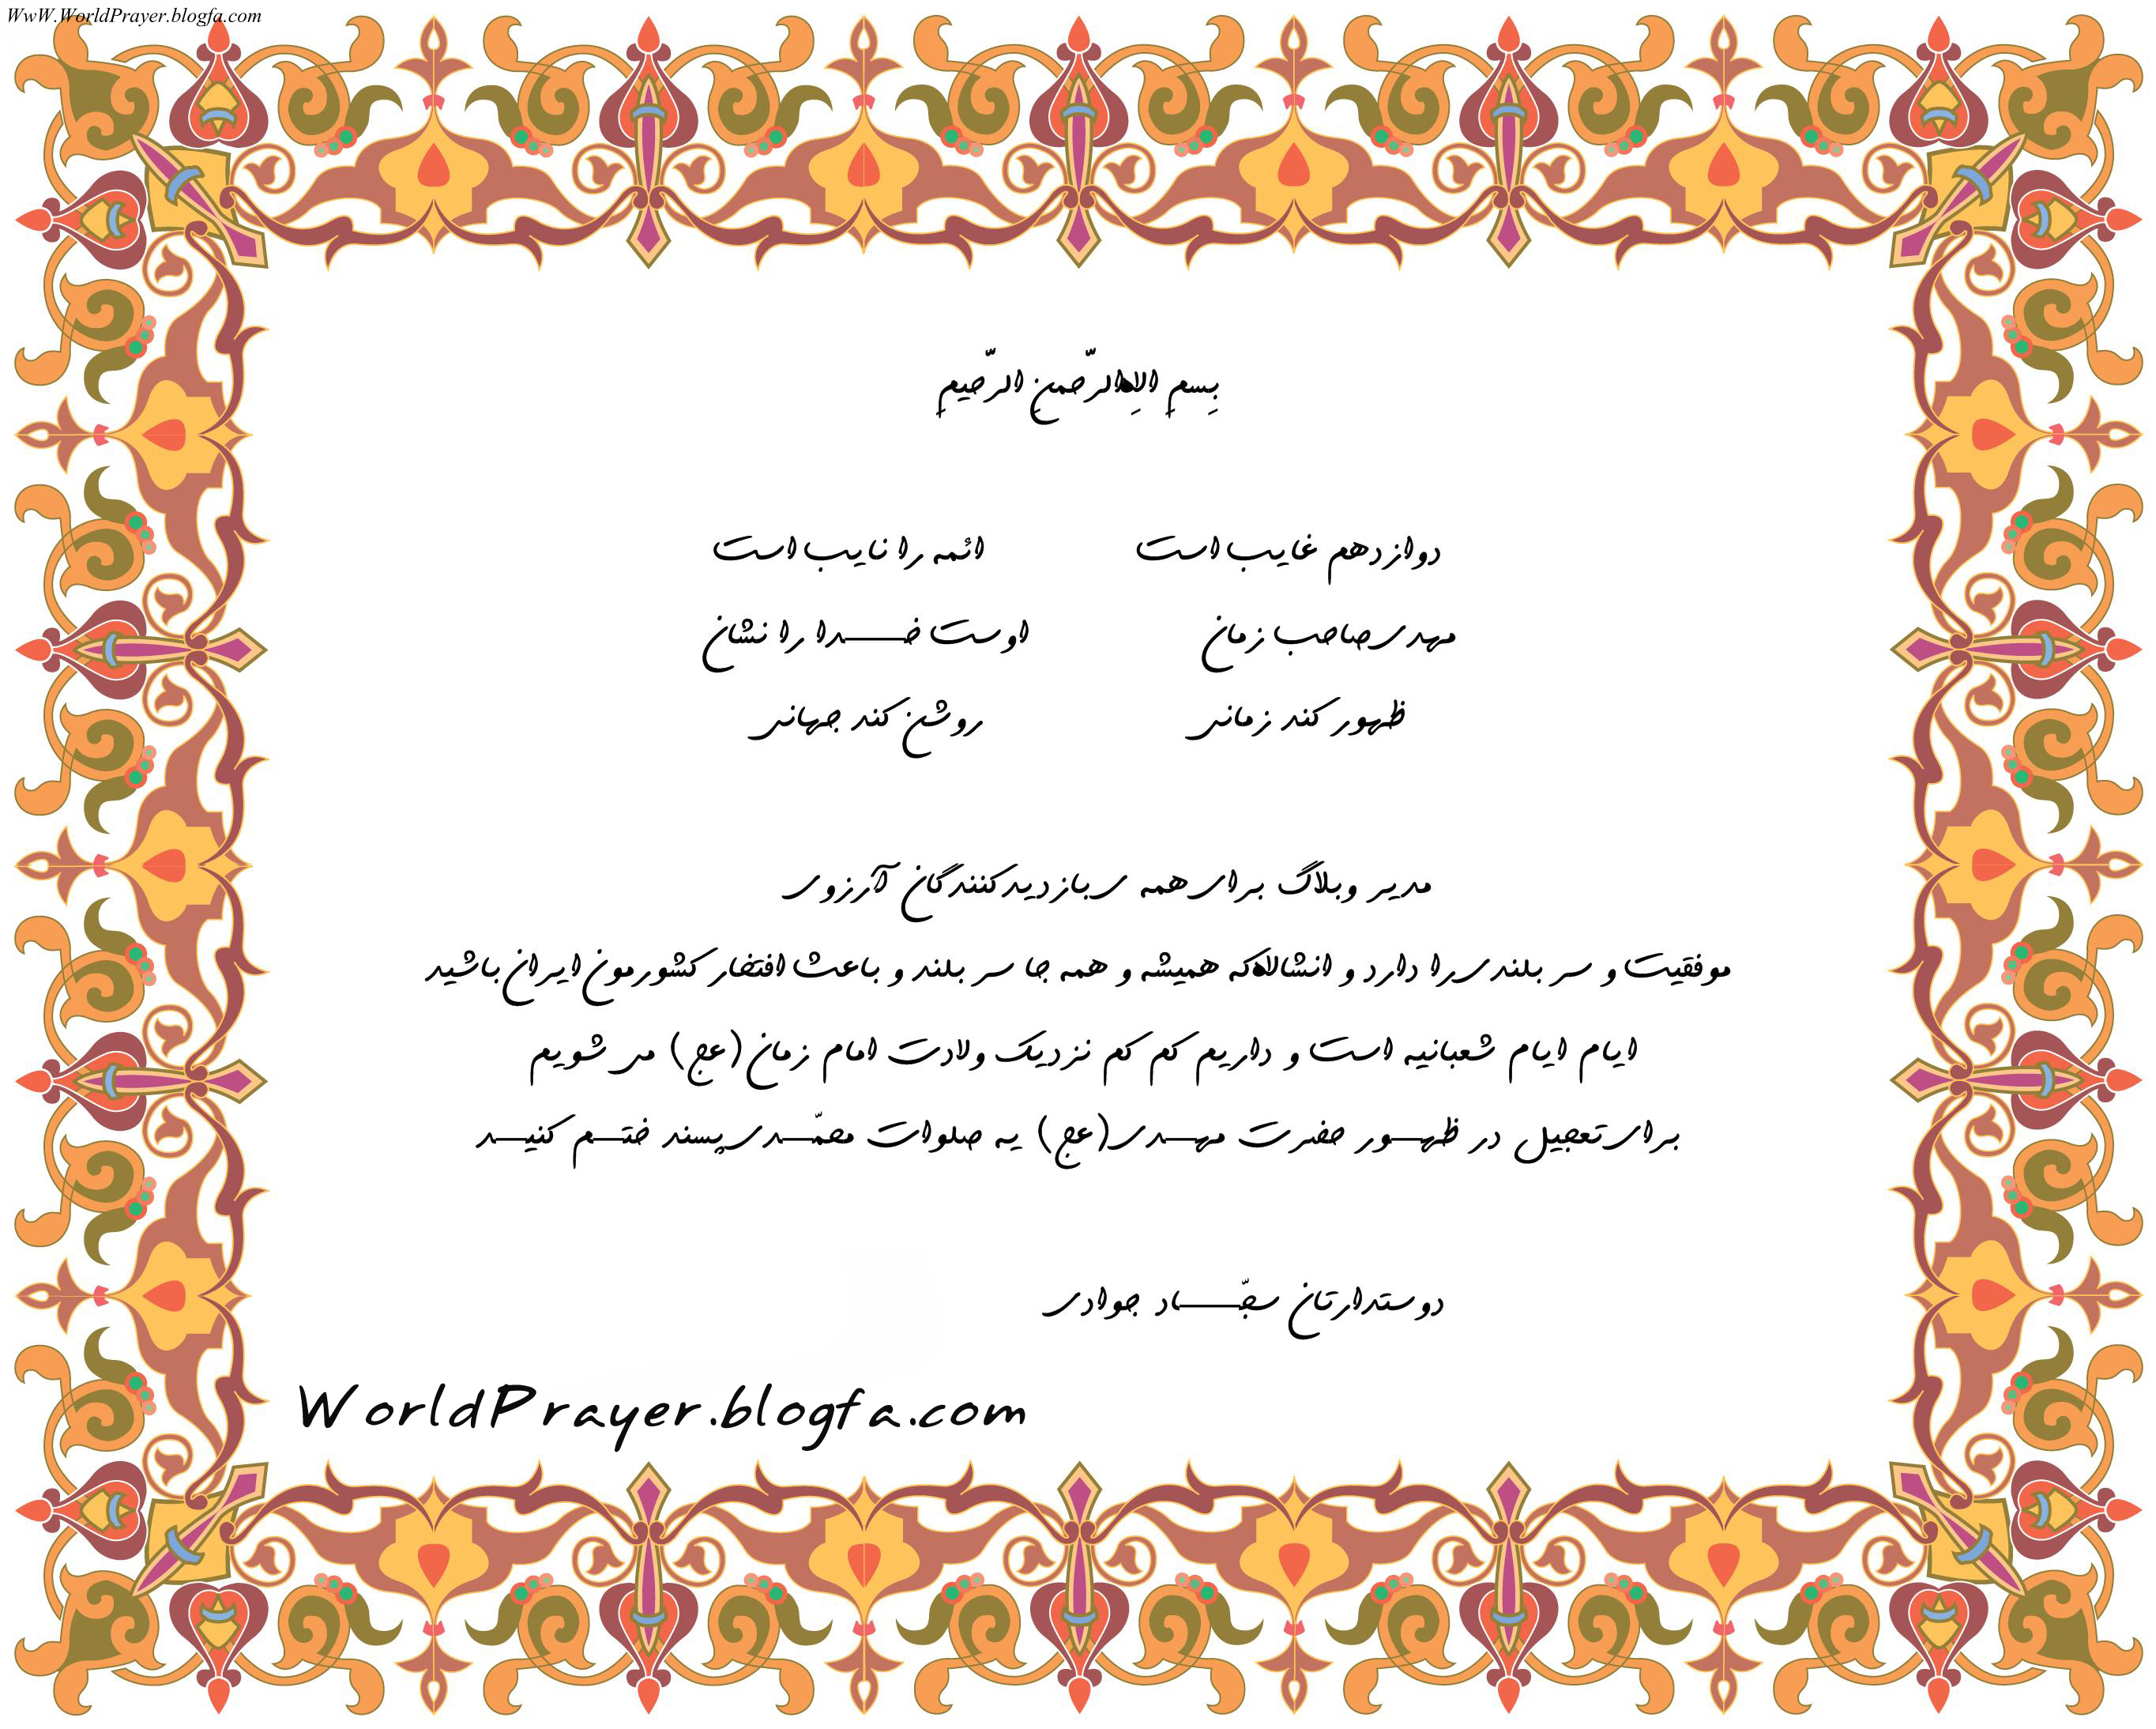 WwW.WorldPrayer.blogfa.com
بِسمِ اللهِ الرّحمنِ الرّحیمِ
دوازدهم غایب است ائمه را نایب است
مهدی صاحب زمان اوست خـــدا را نشان
ظهور کند زمانی روشن کند جهانی
مدیر وبلاگ برای همه ی بازدیدکنندگان آرزوی
موفقیت و سر بلندی را دارد و انشالله که همیشه و همه جا سر بلند و باعث افتخار کشورمون ایران باشید
ایام ایام شعبانیه است و داریم کم کم نزدیک ولادت امام زمان(عج) می شویم
برای تعجیل در ظهـور حضرت مهـدی(عج) یه صلوات محمّـدی پسند ختـم کنیـد
دوستدارتان سجّـــاد جوادی
WorldPrayer.blogfa.com